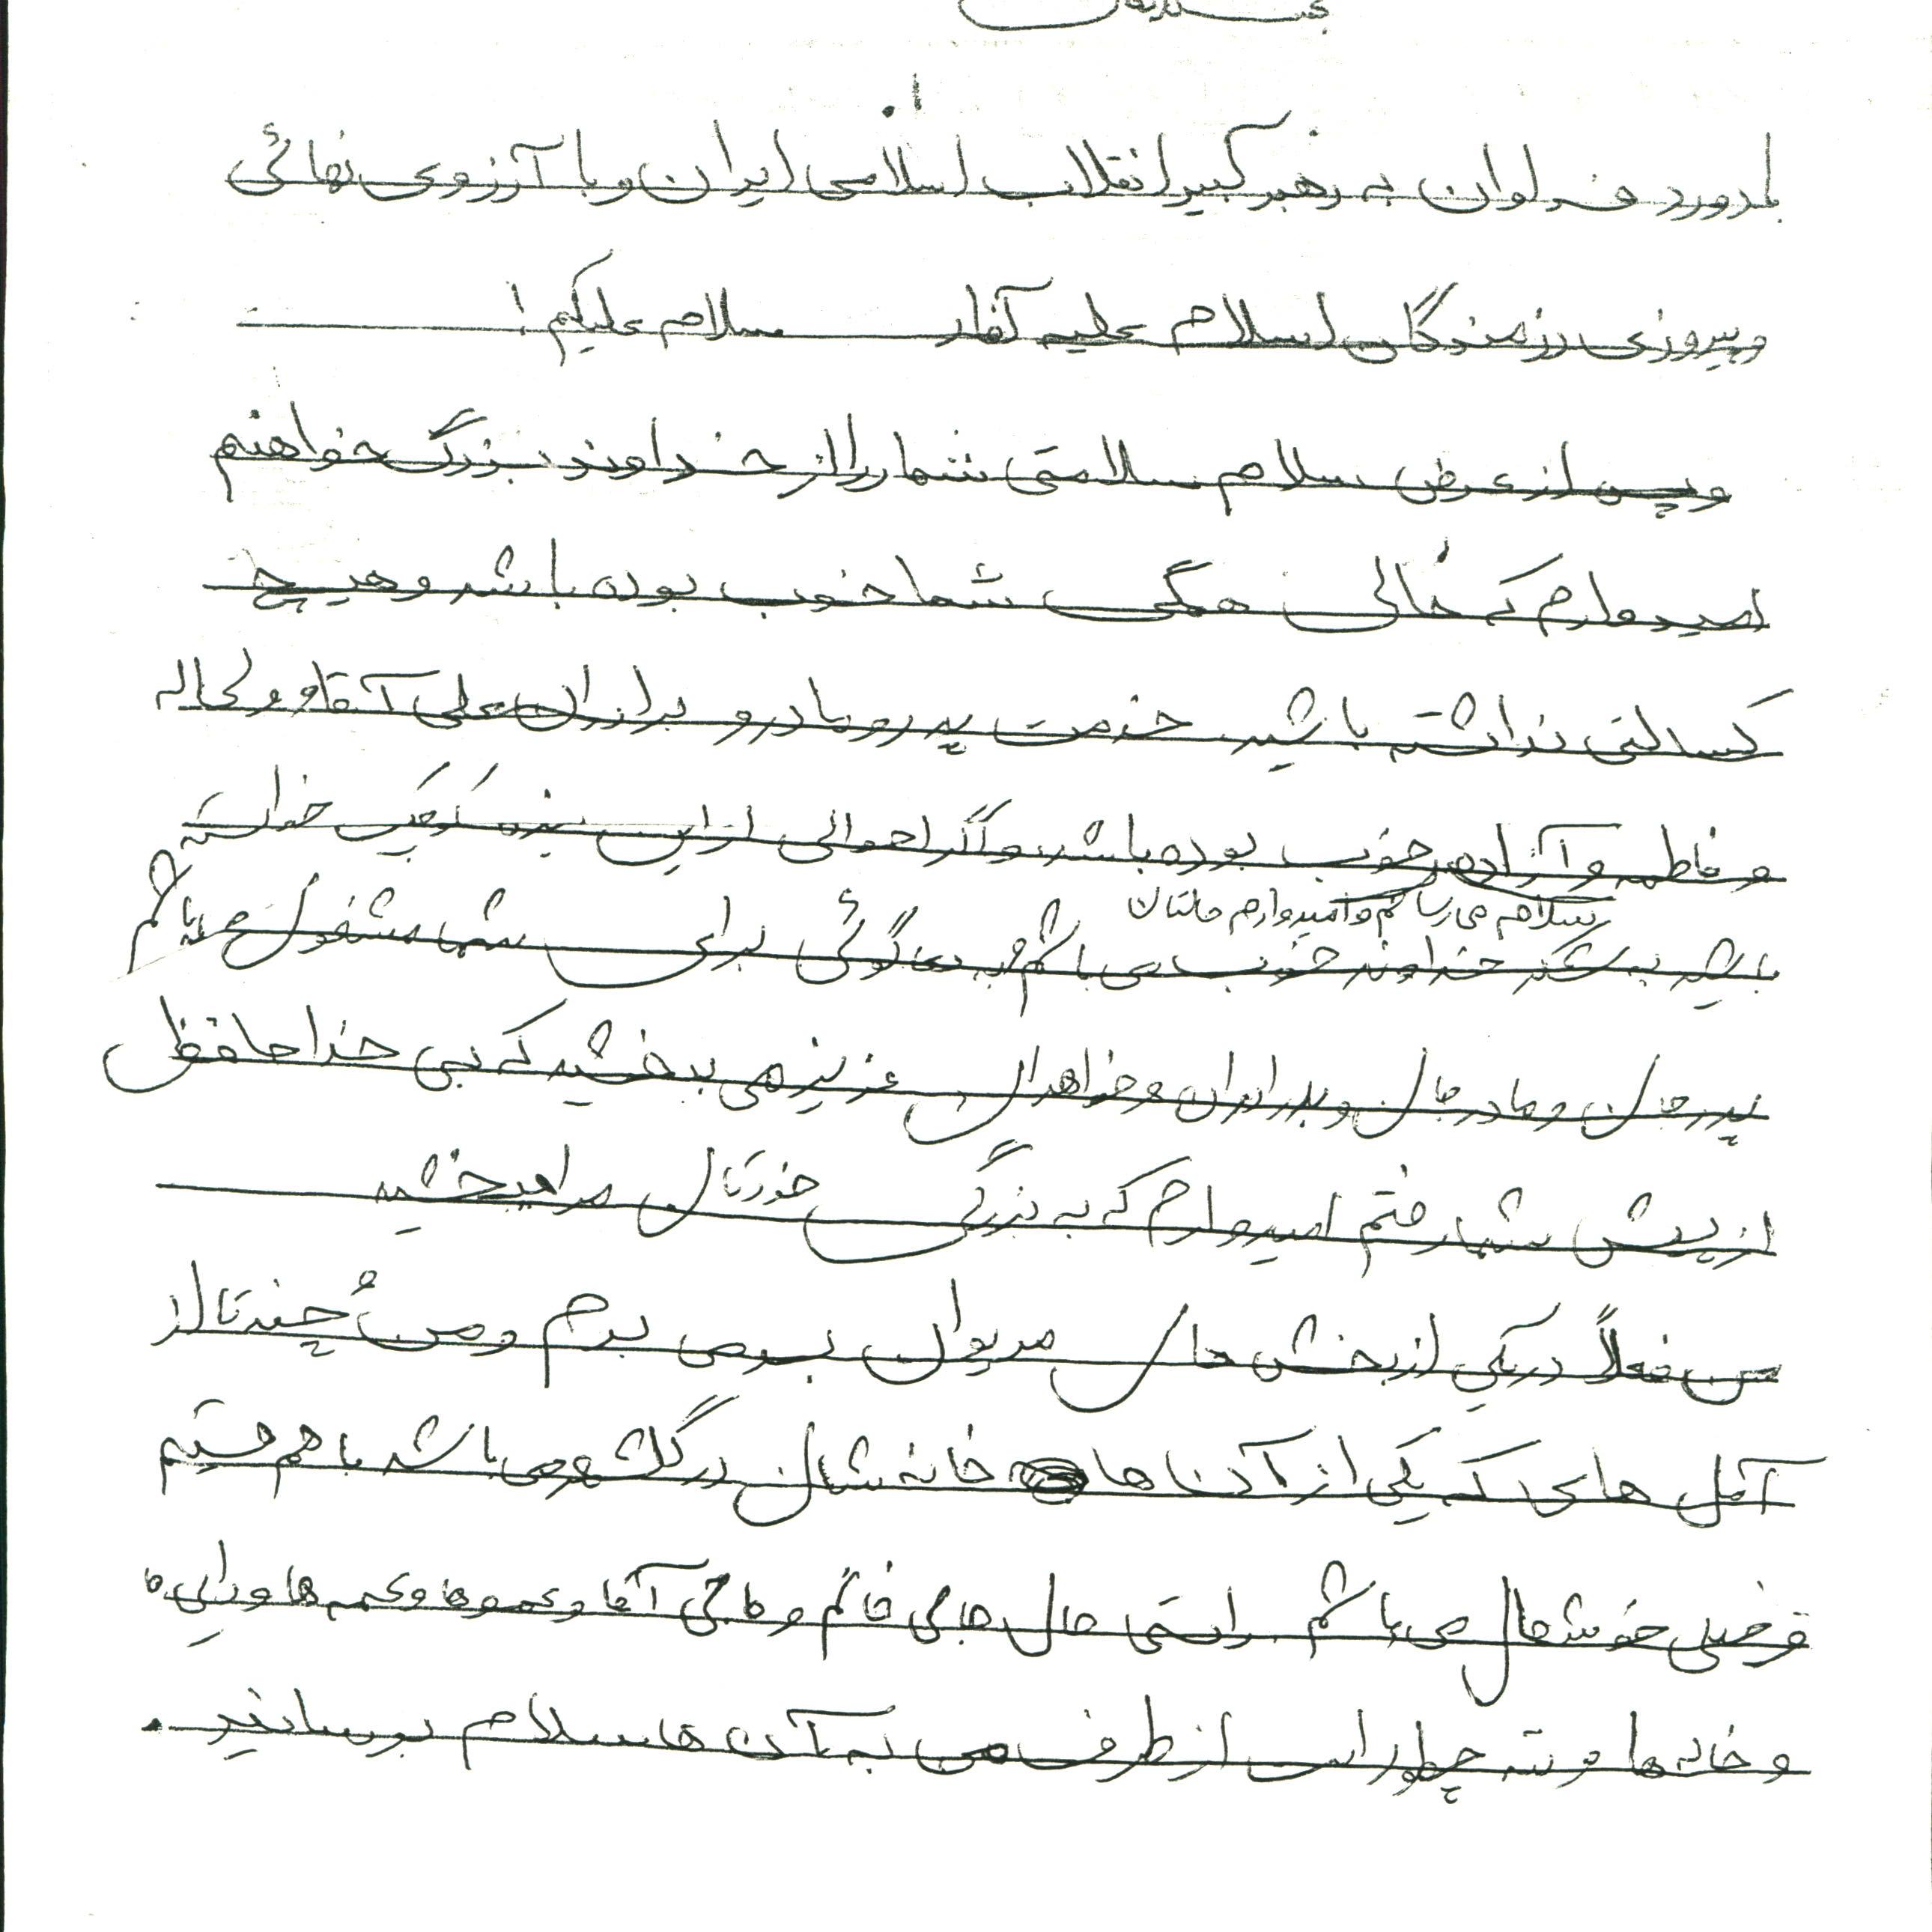 با درود فراوان به رهبر کبیر انقلاب اسلامی ایران و با آرزوی نهائی
و پیروزی رزمندگان اسلام علیه کفار سلام علیکم!
و پس از عرض سلام سلامتی شما را از خداوند بزرگ خواهنم
امیدوارم که حالی همگی شما خوب بوده باشد و هیچ
کسالتی نداشته باشید خدمت پدر و مادر و برادران علی آقا و
و فاطمه و آزاده خوب بوده باشد و اگر احوالی از این بنده خواسته
سلام می رسانم و امیدوارم حالتان
باشید به شکر خداوند خوب می باشم و به دعاگوئی برای شما مشغول می باشم
پدر جان و مادر جان و برادران و خواهران عزیزم می بخشید که بی خداحافظی
از پیش شما رفتم امیدوارم که به بزرگی خودتان مرا ببخشید
من فعلاً در یکی از بخش های مریوان بسر می برم و من چند تا از
که یکی از آن ها خانه شان در گلشهر می باشد با هم هستیم
و خیلی خوشحال می باشم. راستی حال حاجی خانم و حاجی آقا و عمو ها و عمه ها و دایی ها
و خاله ها چطور است از طرف من به آن ها سلام برسانید.